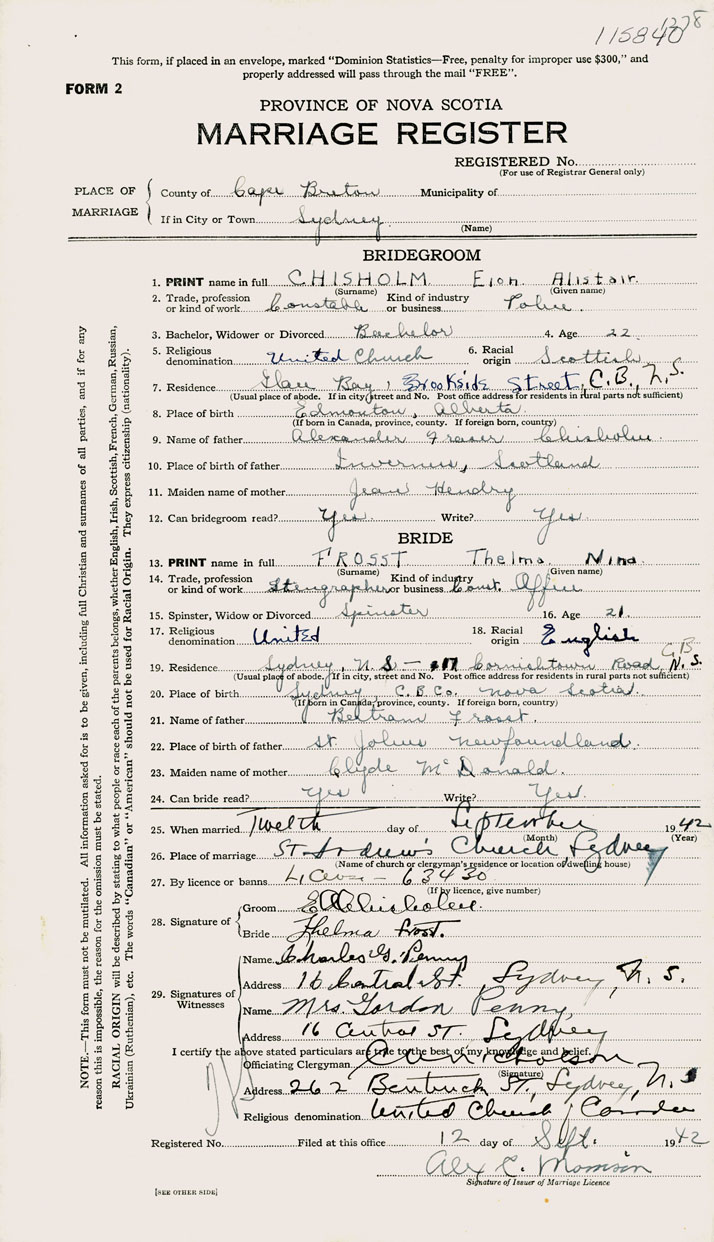 115840
1278
This form, if placed in an envelope, marked "Dominion Statistics—Free, penalty for improper use $300," and
properly addressed will pass through the mail "FREE".
FORM 2
PROVINCE OF NOVA SCOTIA
MARRIAGE REGISTER
REGISTERED No.
(For use of Registrar General only)
PLACE OF MARRIAGE
County of Cape Breton Municipality of
If in City or Town Sydney
(Name)
BRIDEGROOM
1. PRINT name in full CHISHOLM Eion Alistair.
(Surname) (Given name)
2. Trade, profession or kind of work Constable Kind of industry or business Police.
3. Bachelor, Widower or Divorced Bachelor 4. Age 22
5. Religious denomination United Church 6. Racial origin Scottish
7. Residence Glace Bay, Brookside Street, C.B., N.S.
(Usual place of abode. If in city, street and No. Post office address for residents in rural parts not sufficient)
8. Place of birth Edmonton, Alberta
(If born in Canada, province, county. If foreign born, country)
9. Name of father Alexander Fraser Chisholm
10. Place of birth of father Inverness, Scotland
11. Maiden name of mother Jean Hendry
12. Can bridegroom read? Yes. Write? Yes.
BRIDE
13. PRINT name in full FROSST Thelma Nina
(Surname) (Given name)
14. Trade, profession or kind of work Stenographer Kind of industry or business Const. Office
15. Spinster, Widow or Divorced Spinster 16. Age 21.
17. Religious denomination United 18. Racial origin English
19. Residence Sydney, N.S – Cornishtown Road, C.B. N.S.
(Usual place of abode. If in city, street and No. Post office address for residents in rural parts not sufficient)
20. Place of birth Sydney, C.B.Co. Nova Scotia.
(If born in Canada, province, county. If foreign born, country)
21. Name of father Beltram Frosst.
22. Place of birth of father St. Johns Newfoundland.
23. Maiden name of mother Clyde McDonald.
24. Can bride read? Yes Write? Yes.
25. When married Twelth day of September 1942
(Month) (Year)
26. Place of marriage St Andrew's Church Sydney
(Name of church or clergyman's residence or location of dwelling house)
27. By licence or banns Licen – 63430
(If by licence, give number)
28. Signature of
Groom E A Chisholm.
Bride Thelma Frost.
29. Signatures of Witnesses
Name Charles G. Penny
Address 16 Central St., Sydney, N.S.
Name Mrs. Gordon Penny,
Address 16 Central St. Sydney
I certify the above stated particulars are true to the best of my knowledge and belief.
Officiating Clergyman
(Signature)
Address 262 Bentinck St, Sydney, N.S
Religious denomination United Church, Canada
Registered No. Filed at this office 12 day of Sept. 1942
Alex C. Morrison
Signature of Issuer of Marriage Licence
[SEE OTHER SIDE]
NOTE.—This form must not be mutilated. All information asked for is to be given, including full Christian and surnames of all parties, and if for any
reason this is impossible, the reason for the omission must be stated.
RACIAL ORIGIN will be described by stating to what people or race each of the parents belongs, whether English, Irish, Scottish, French, German, Russian,
Ukrainian (Ruthenian), etc. The words "Canadian" or "American" should not be used for Racial Origin. They express citizenship (nationality).